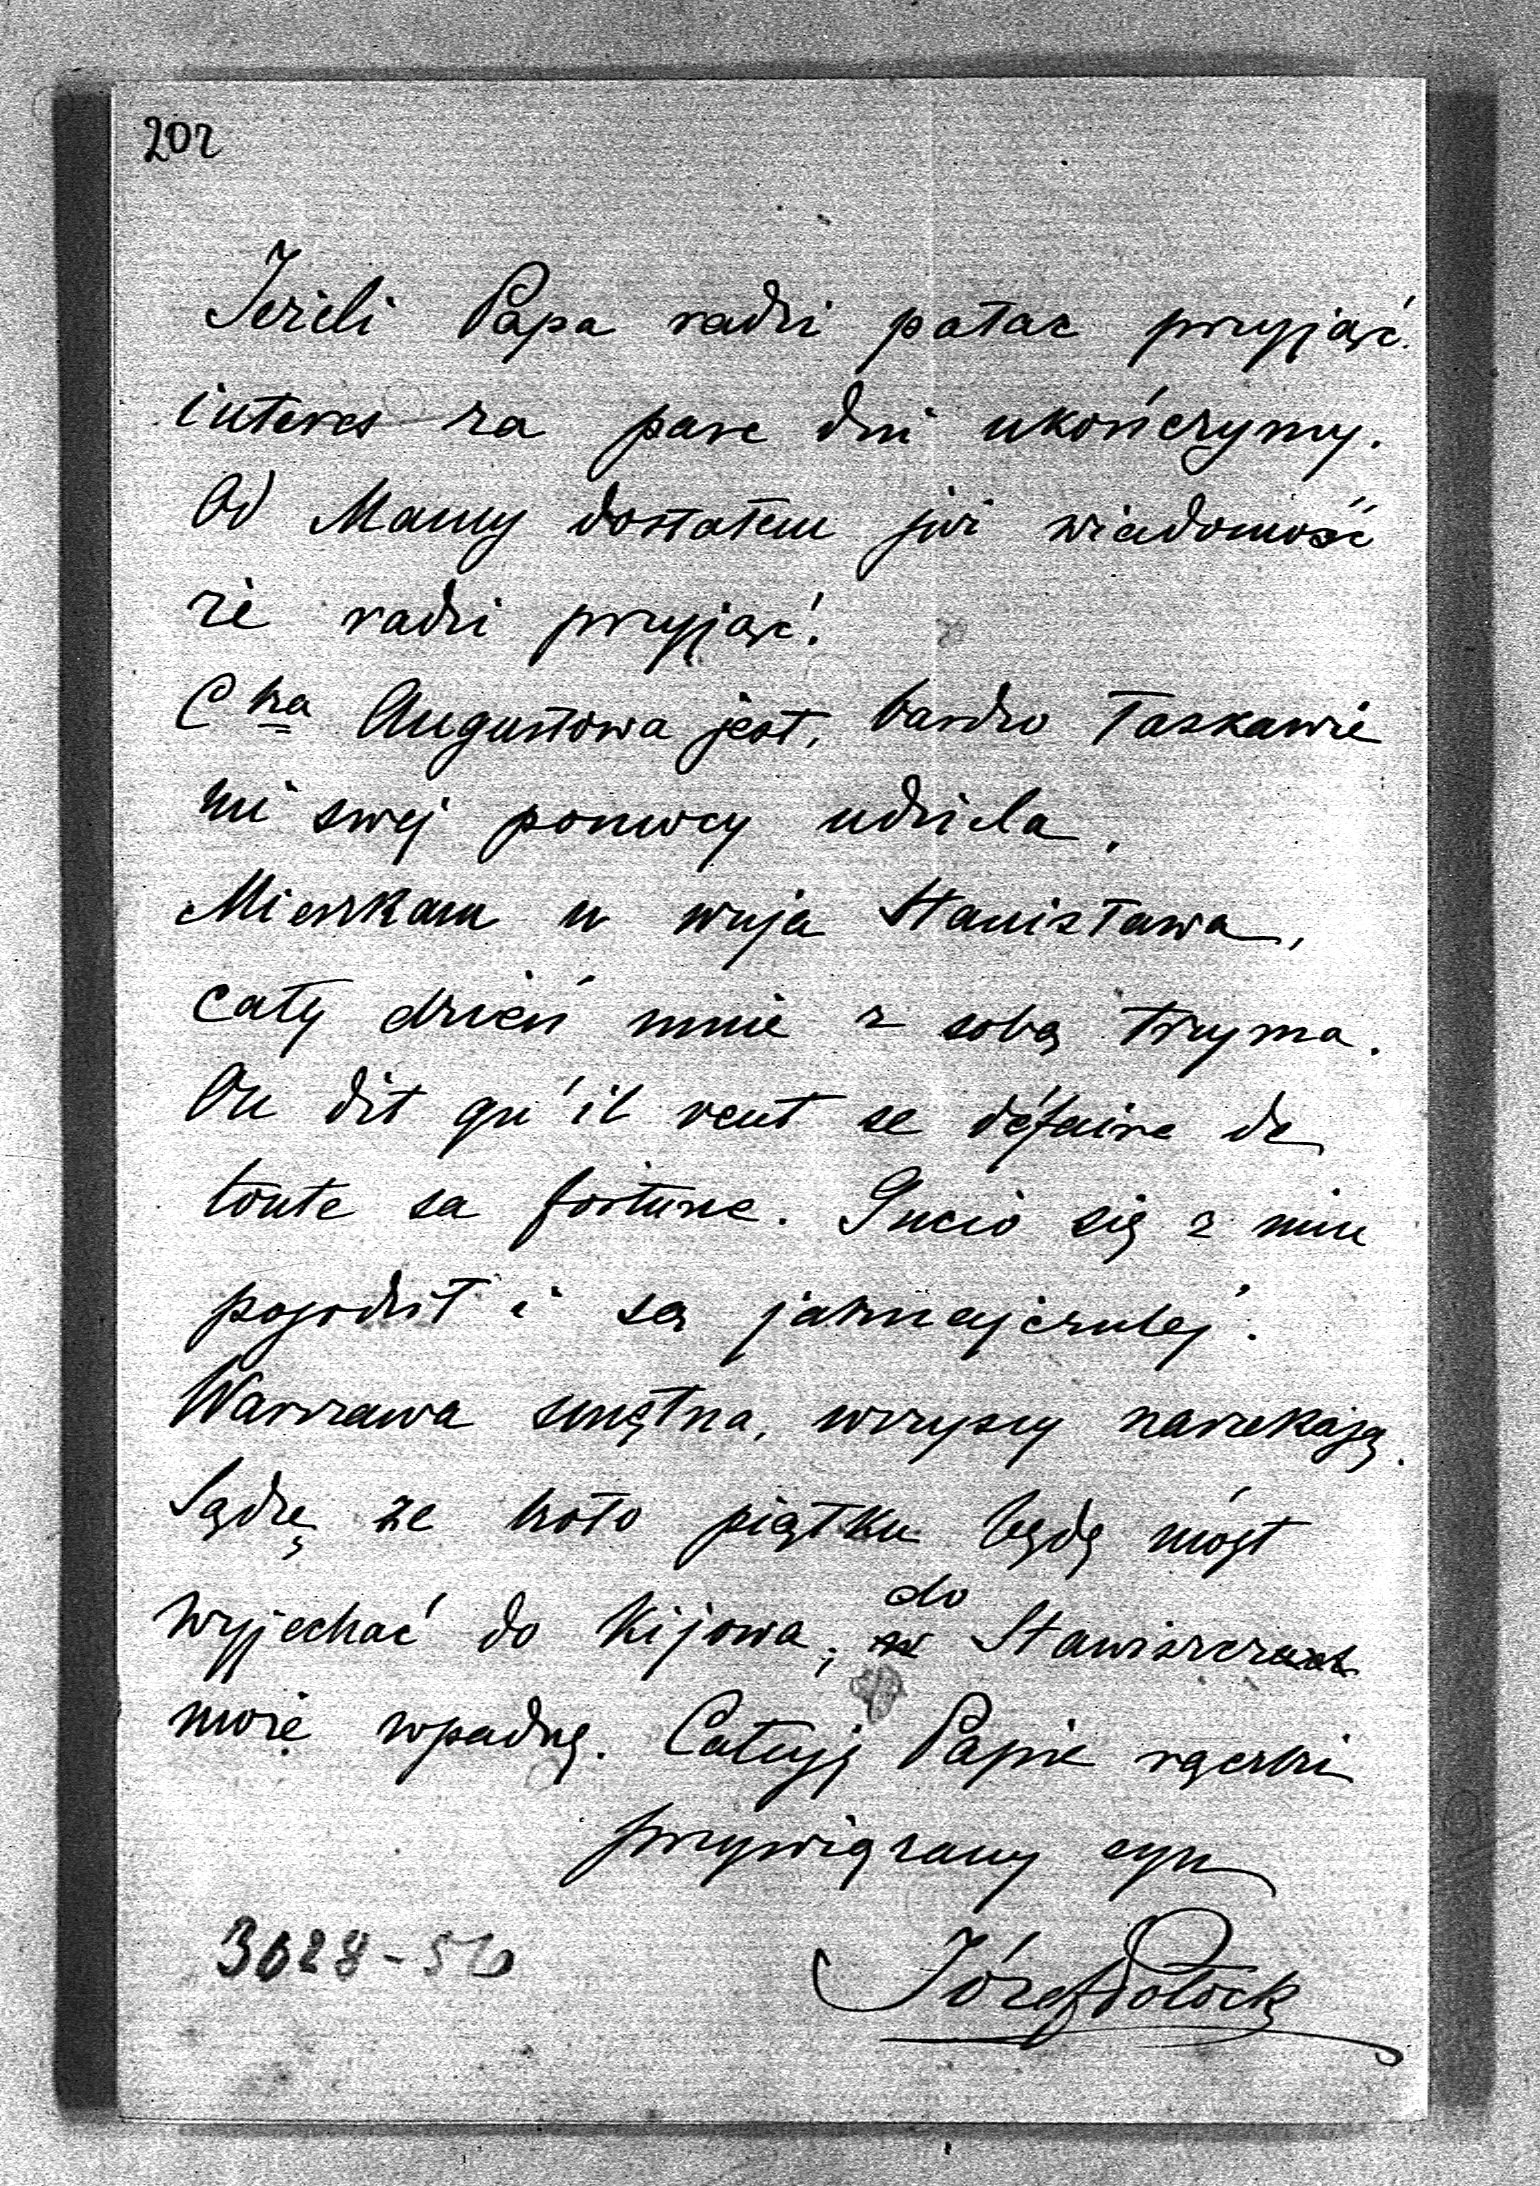 202
Jeżeli Papa radzi pałac przyjąć
interes za parę dni ukończymy.
Od Mamy dostałem już wiadomość
że radzi przyjąć.
Cna Augustowa jest, bardzo łaskawie
mi swej pomocy udziela.
Mieszkam u wuja Stanisława,
cały dzień mnie z sobą trzyma.
On dit qu'il veut se défaire de
toute sa fortune. Gucio się z nim
pogodził i są jaknajczulej.
Warszawa smętna, wszyscy narzekają.
Sądzę że koło piątku będę mógł
wyjechać do Kijowa, do
może wpadnę. Całuję Papie rączki
przywiązany syn
Józef Potocki
3628-56